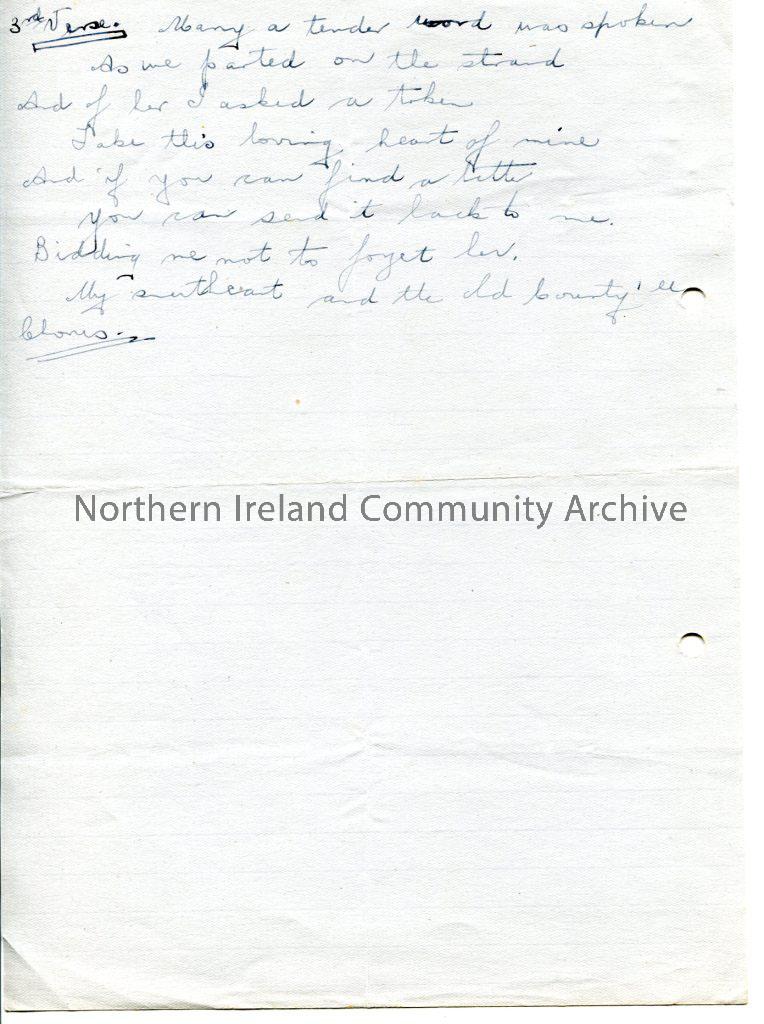 3rd Verse. Many a tender word was spoken
As we parted on the strand
And of her I asked a token
Take this loving heart of mine
And if you can find a
you can send it back to me.
Bidding me not to forget her.
My sweetheart and the old County'ee
Chorus.
Northern Ireland Community Archive